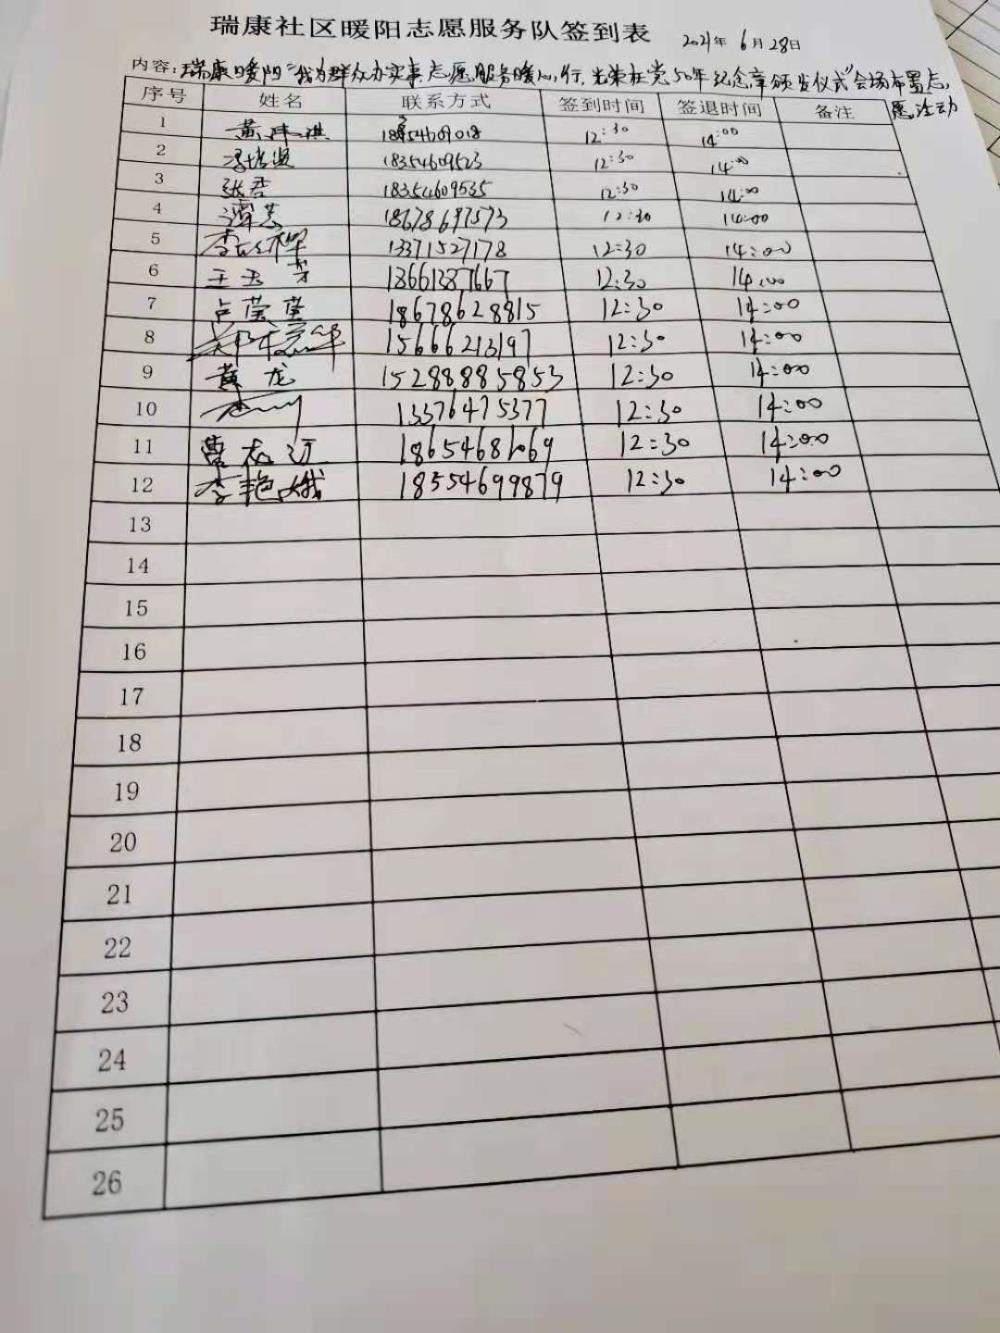 瑞康社区暖阳志愿服务队签到表 2021年6月28日
内容:瑞康暖阳"我为群众办实事志愿服务暖心行,光荣在党50年纪念章颁发仪式"会场布置志
愿活动
序号 姓名 联系方式 签到时间 签退时间 备注
1 12:30 14:00
2 18354609523 12:30 14:00
3 张君 18354609535 12:30 14:00
4 谭慧 18678697573 12:30 14:00
5 13371527178 12:30 14:00
6 王玉芬 18661387667 12:30 14:00
7 占莹莹 18678628815 12:30 14:00
8 15666213197 12:30 14:00
9 黄龙 15288885853 12:30 14:00
10 13376475377 12:30 14:00
11 12:30 14:00
12 李艳娥 18554699879 12:30 14:00
13
14
15
16
17
18
19
20
21
22
23
24
25
26